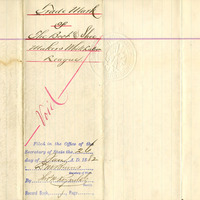 Trade Mark
of
The Boot & Shoe
Makers White Labor
League
Void
Filed in the Office of the
Secretary of State the 26
day of Jany A.D. 18
By
Record Book Page